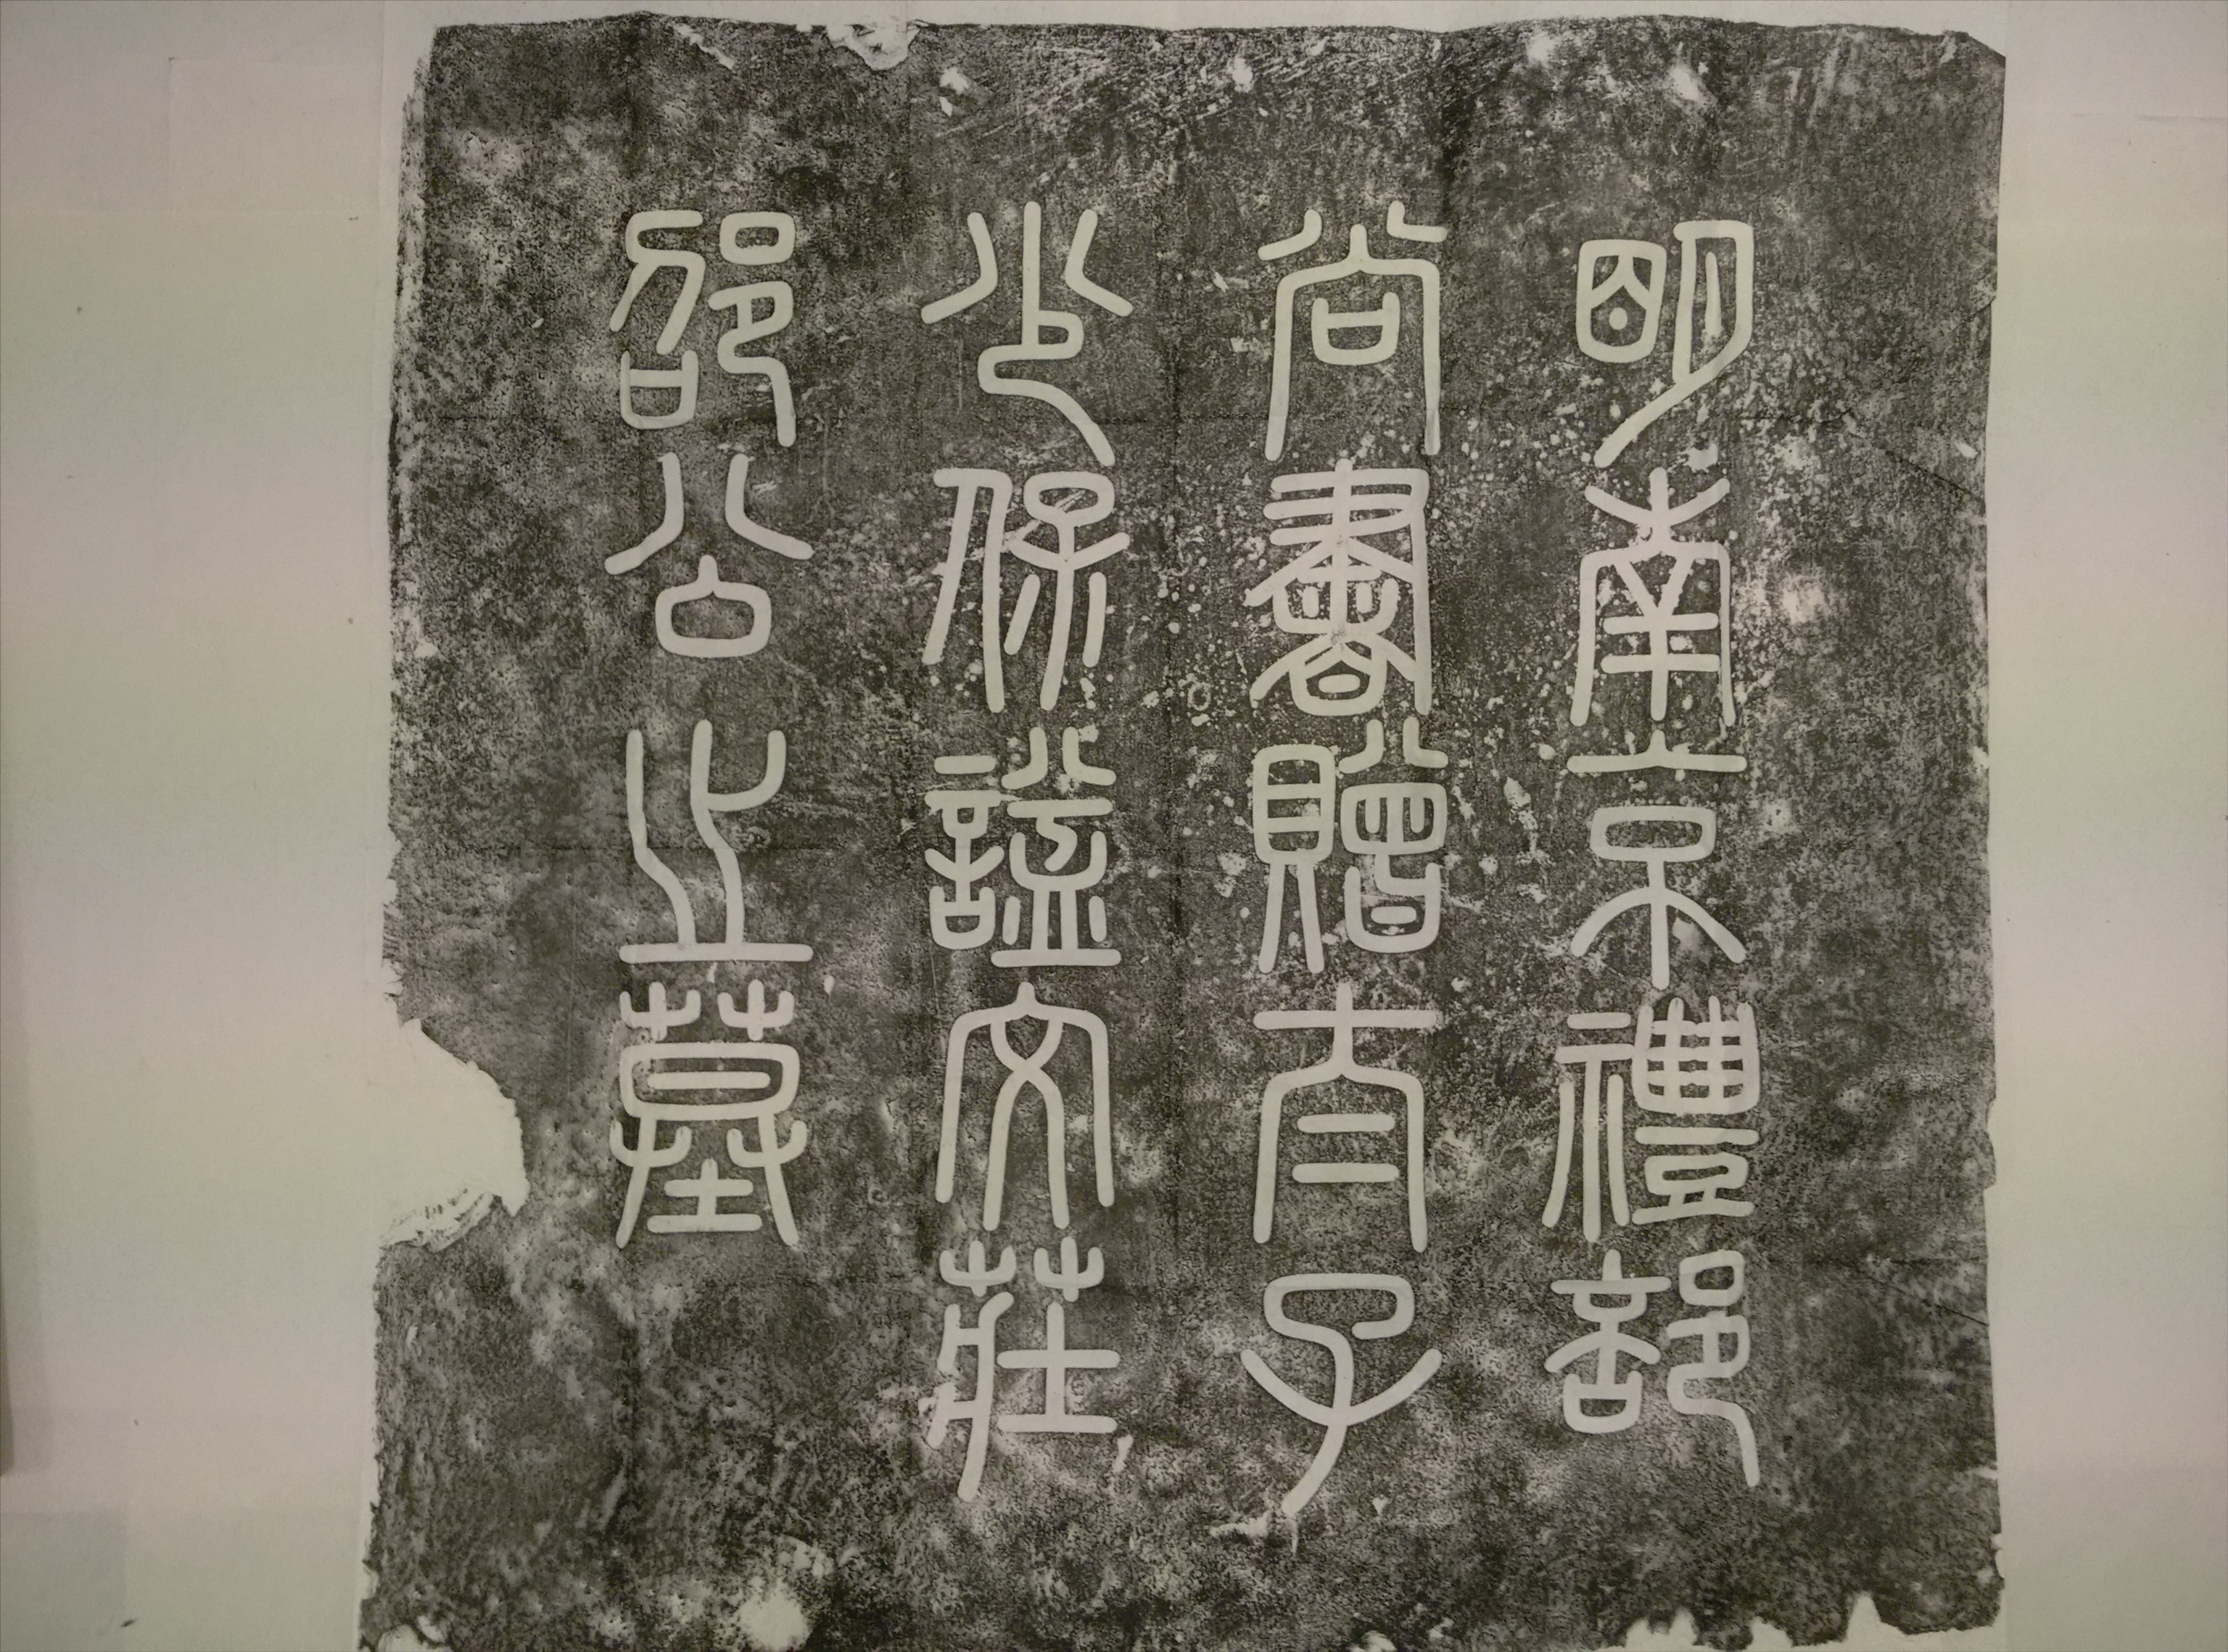 明南京禮部
尚書贈太子
少保謚文莊
邵公之墓